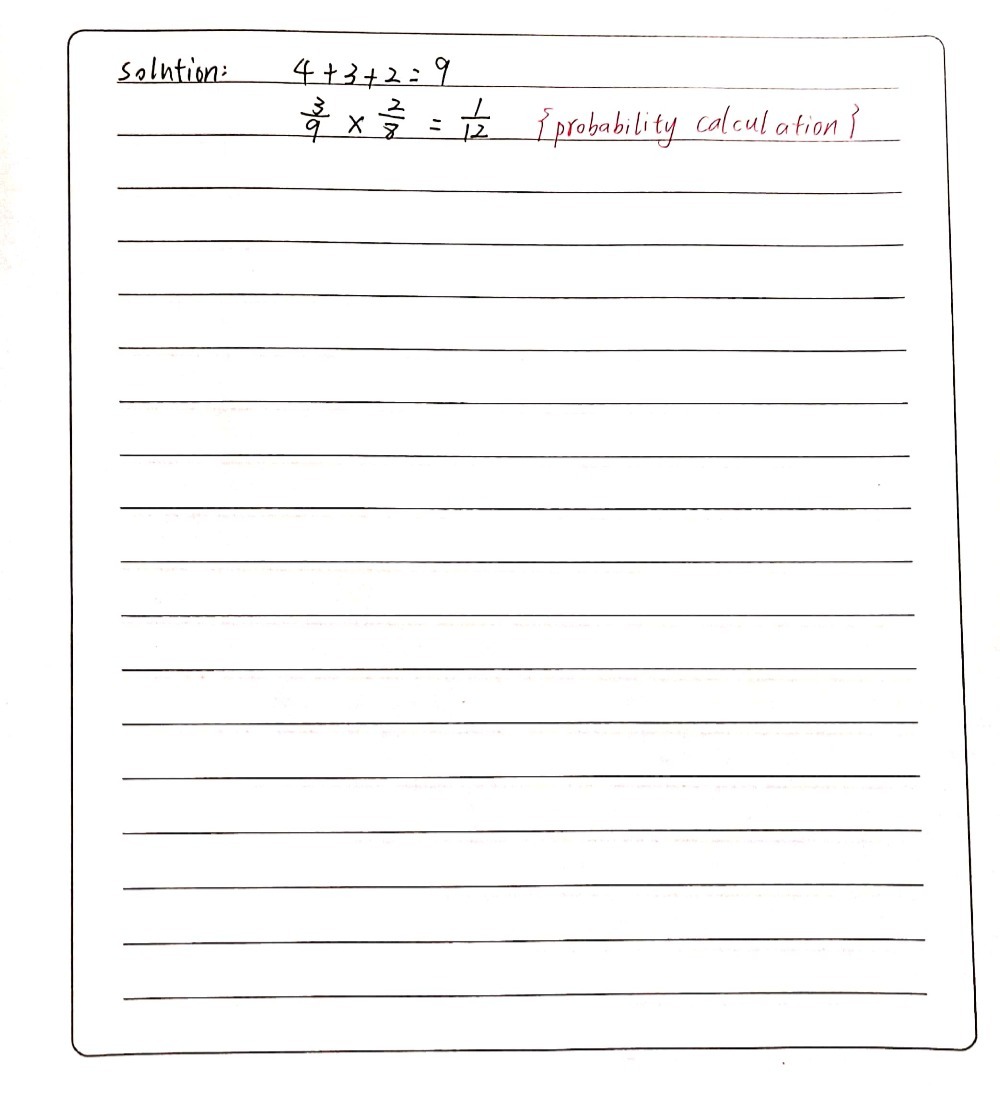 Solution: 4+3+2=9
3/9 × 2/8 = 1/12 {probability calculation}